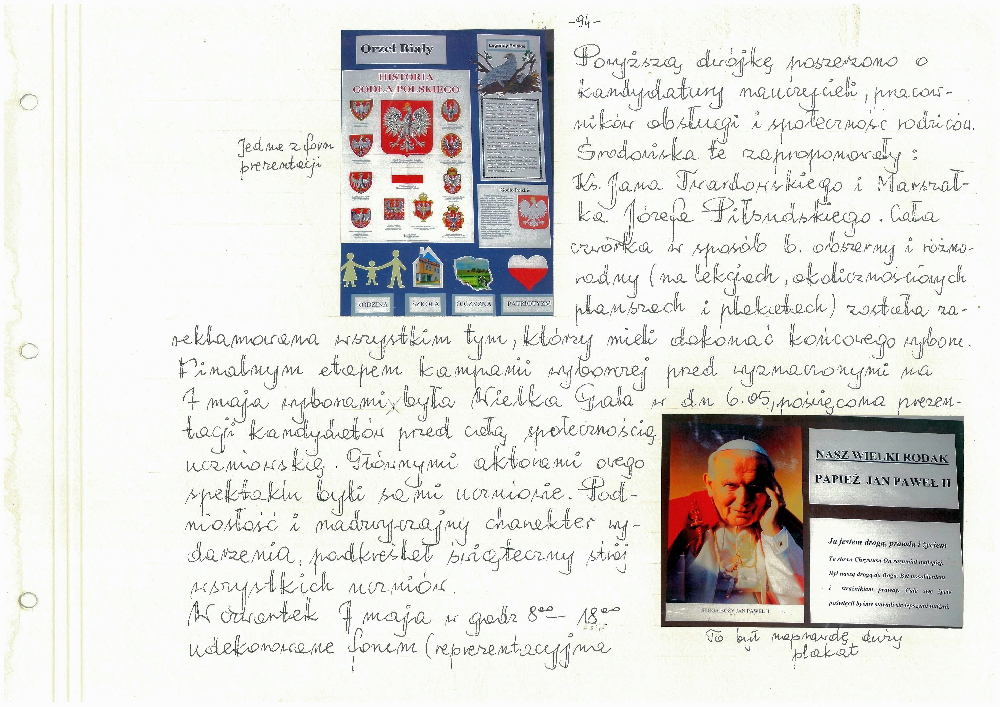 -94-
Orzeł Biały
HISTORIA
GODŁA POLSKIEGO
RODZINA
SZKOŁA
OJCZYZNA
PATRIOTYZM
Jedna z form
prezentacji
Powyższą dwójkę poszerzono o
kandydatury nauczycieli, pracow-
ników obsługi i społeczność rodziców.
Środowiska te zaproponowały:
Ks. Jana Twardowskiego i Marszał-
ka Józefa Piłsudskiego. Cała
czwórka w sposób b. obszerny i różno-
rodny (na lekcjach, okolicznościowych
planszach i plakatach) została za-
reklamowana wszystkim tym, którzy mieli dokonać końcowego wyboru.
Finalnym etapem kampanii wyborczej przed wyznaczonymi na
7 maja wyborami, była Wielka Gala w dn 6.05, poświęcona prezen-
tacji kandydatów przed całą społecznością
uczniowską. Głównymi aktorami owego
spektaklu byli sami uczniowie. Pod-
niosłość i nadzwyczajny charakter wy-
darzenia, podkreślał świąteczny strój
wszystkich uczniów.
W czwartek 7 maja w godz 8⁰⁰ – 18⁰⁰
udekorowane forum (reprezentacyjna
NASZ WIELKI RODAK
PAPIEŻ JAN PAWEŁ II
Ja jestem drogą, prawdą i życiem
SŁUGA BOŻY JAN PAWEŁ II
To był naprawdę duży
plakat